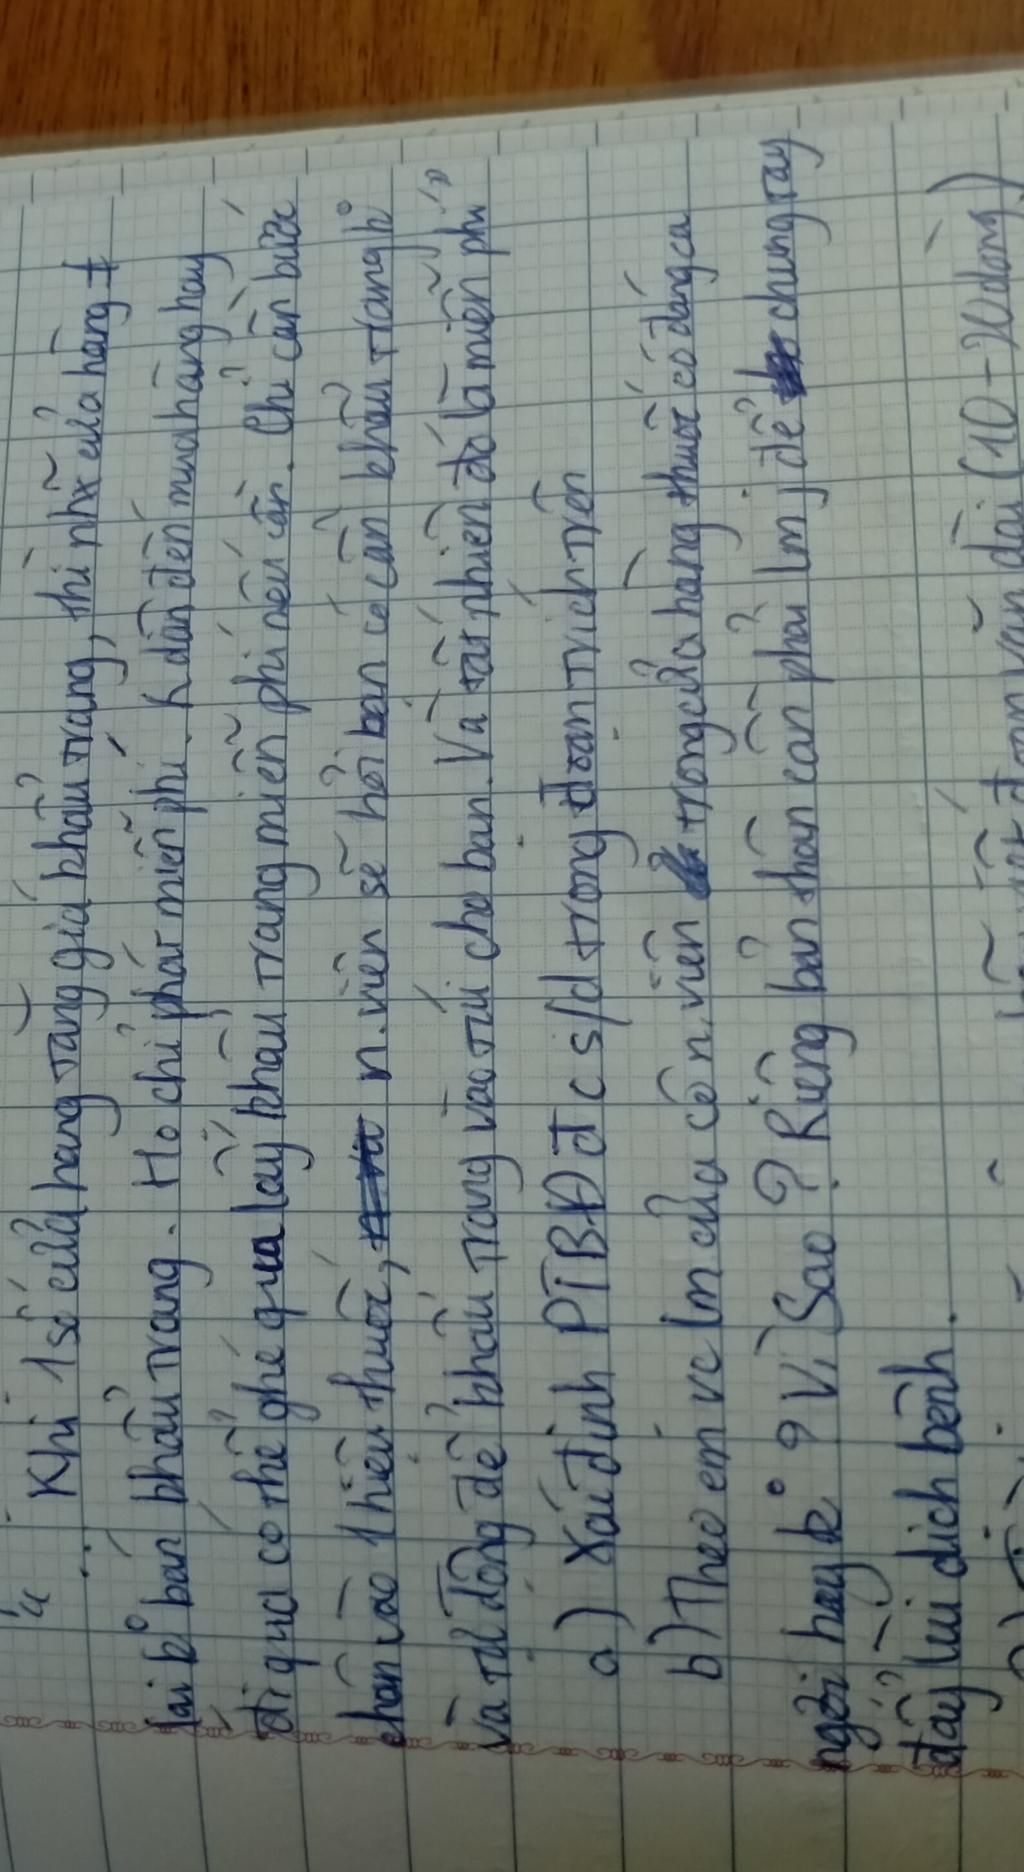 "
Khi 1 số cửa hàng tăng giá khẩu trang, thì nhx cửa hàng ≠
lại k° bán khẩu trang. Họ chỉ phát miễn phí. K dần đến mua hàng hay
đi qua có thể ghé qua lấy khẩu trang miễn phí nếu cần. Chỉ cần bước
chân vào 1 hiệu thuốc, n.viên sẽ hỏi bạn có cần khẩu trang k°
và tự động để khẩu trang vào túi cho bạn. Và tất nhiên đó là miễn phí"
a) Xác định PTBĐ đc s/d trong đoạn trích trên
b) Theo em vc lm của cô n.viên trong cửa hàng thuốc có đáng ca
ngợi hay k° ? Vì Sao ? Riêng bản thân cần phải lm j để chung tay
đẩy lùi dịch bệnh.
đoạn văn dài (10-12 dòng)